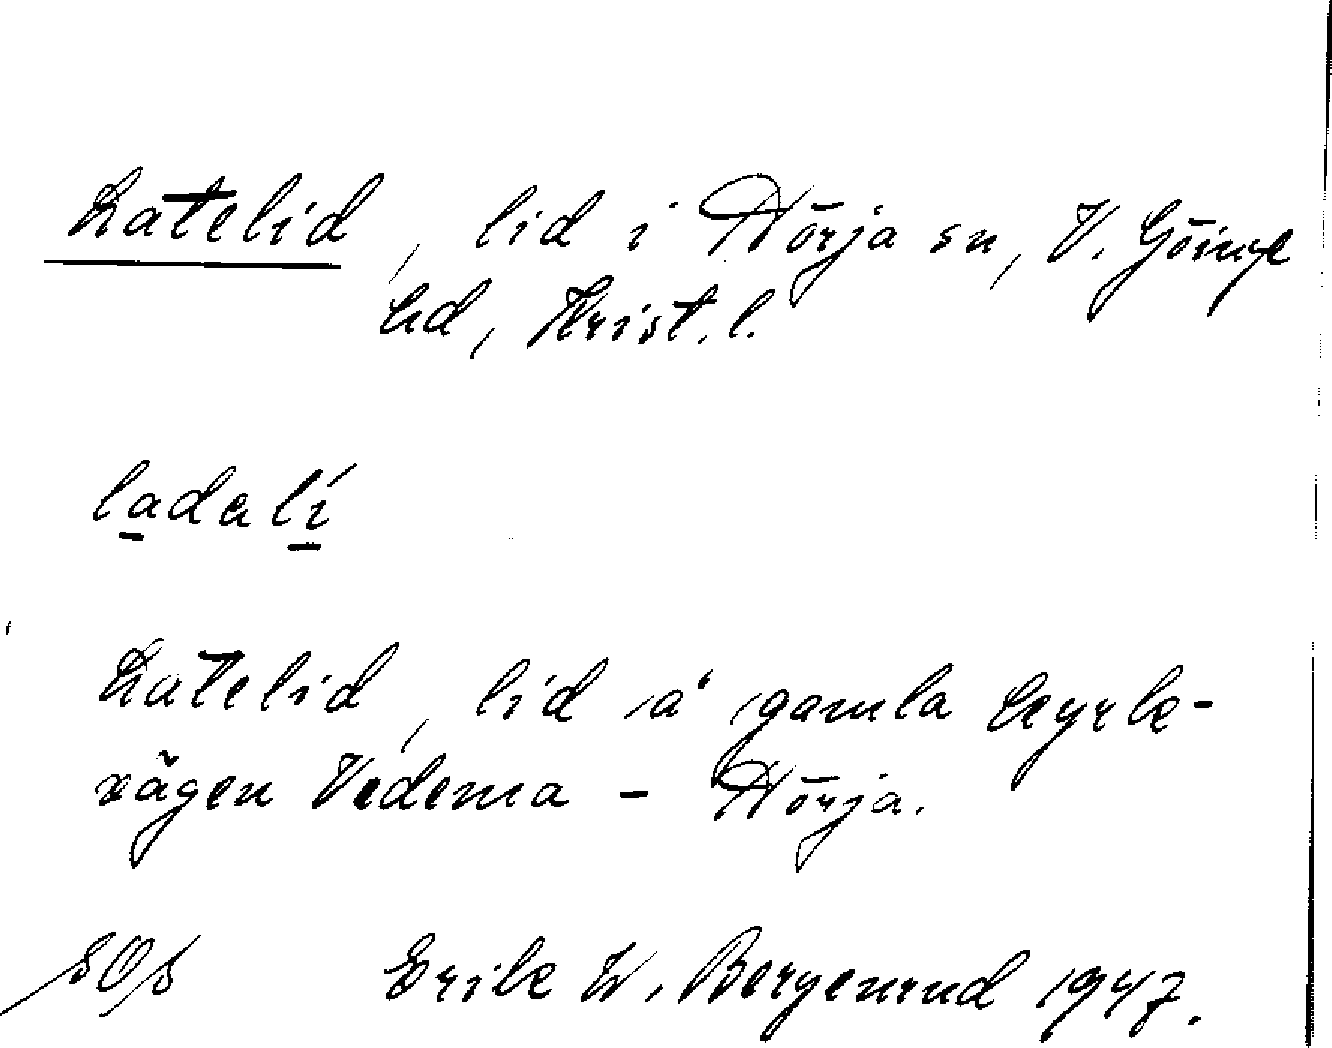 Latelid, lid i Hörja sn, V. Göinge
hd, Krist. l.
ladalí
Latelid, lid å gamla kyrk-
vägen Vedema – Hörja.
Erik W. Bergenrud 1947.